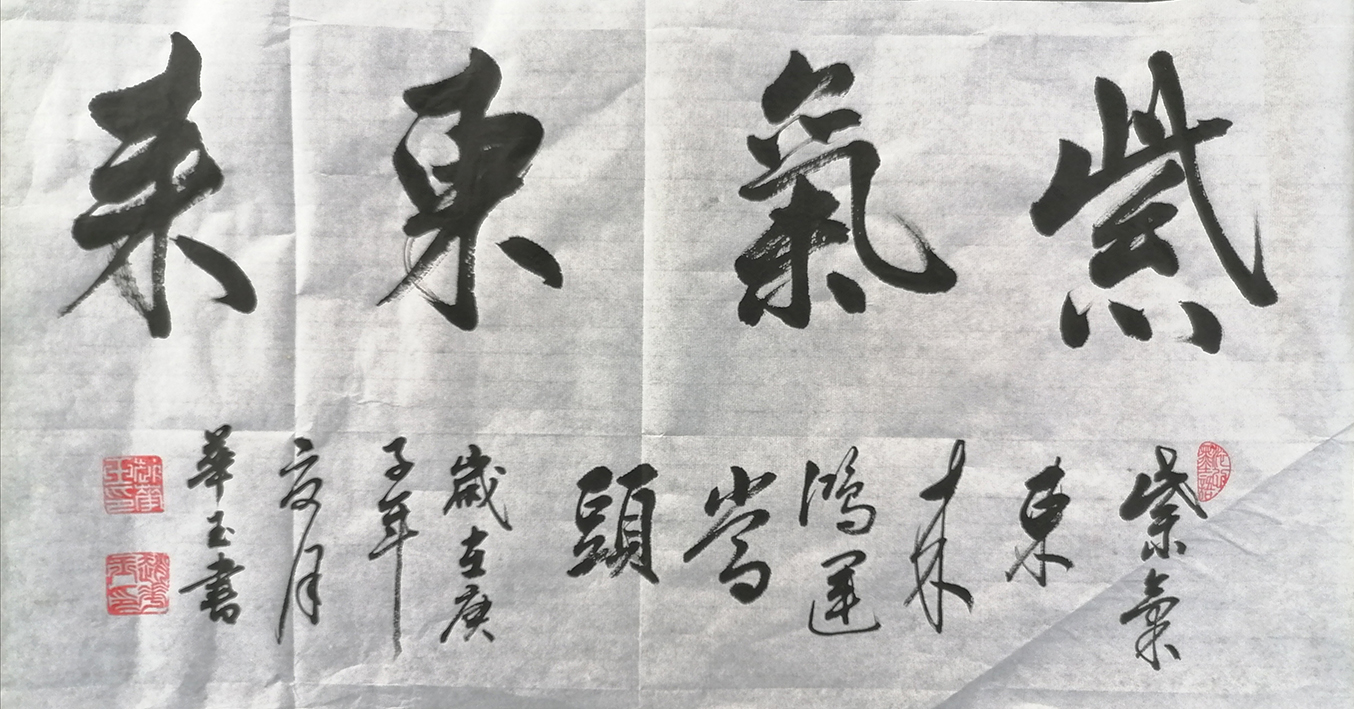 紫氣東来
紫氣
東
来
鴻運
當
頭
歲在庚
子年
夏月
華玉書